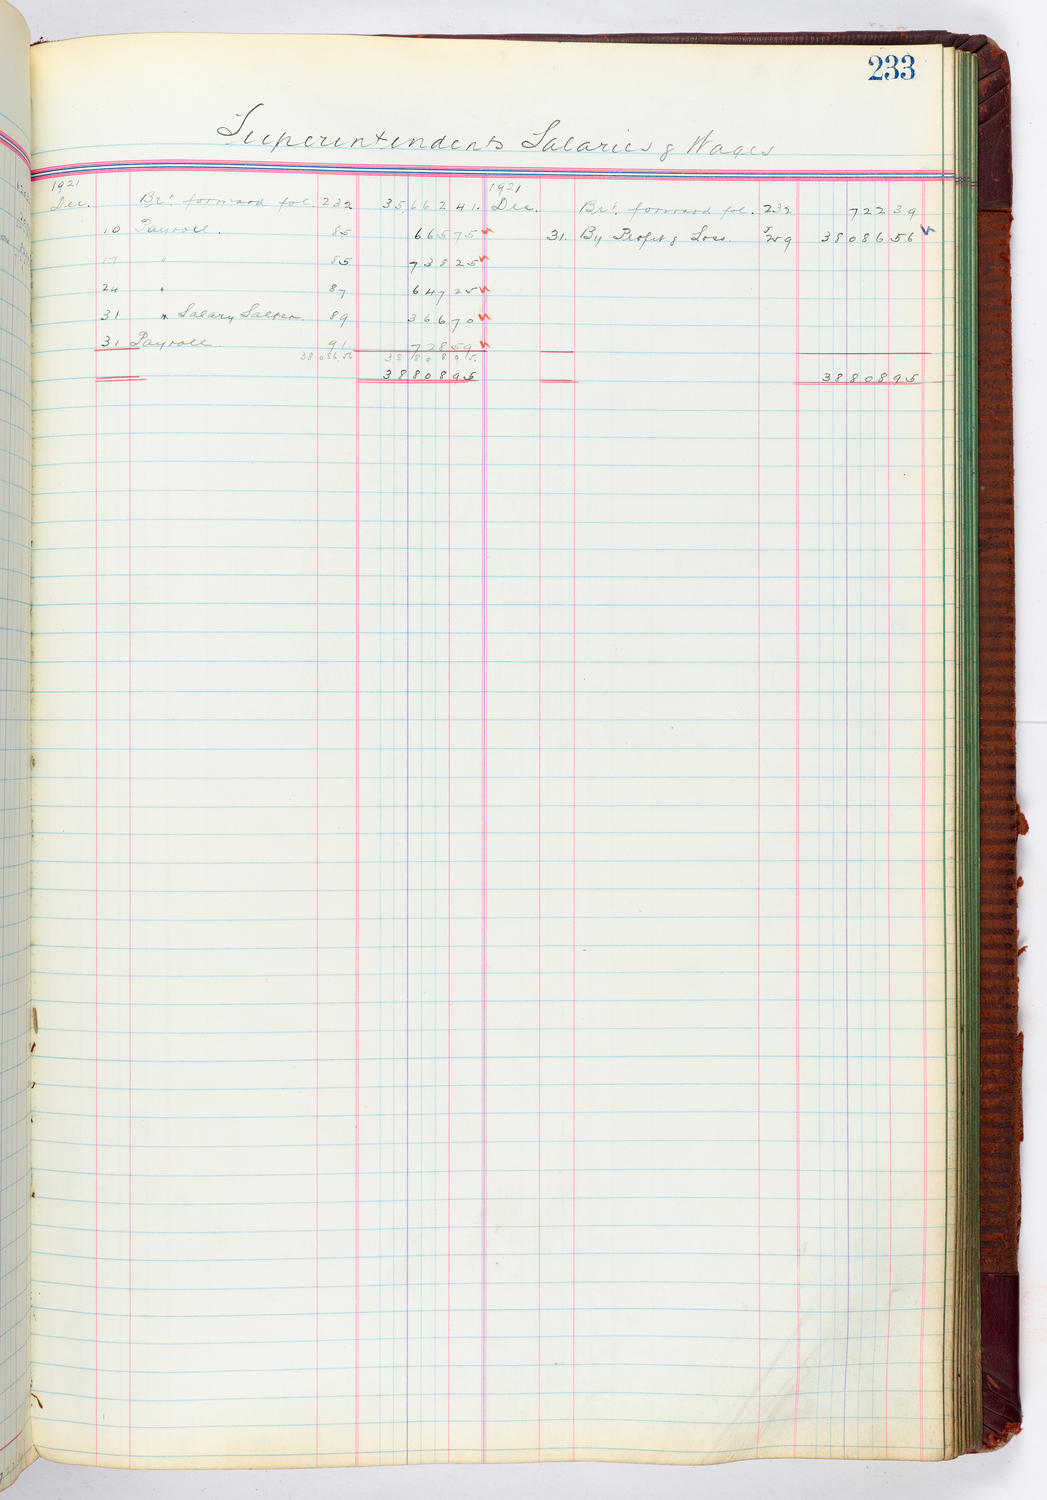 233
Superintendents Salaries & Wages
1921 1921
Dec. Brt. forward fol. 232 35,662 41. Dec. Brt. forward fol. 232 722 39
10 Payroll. 85 665 75 31. By Profit & Loss. 38086 56
17 " 85 738 25
24 " 87 647 25
31 " Salary 89 366 70
31 Payroll 91 728 59
38 086.56 38 808 95
38 808 95 38 808 95